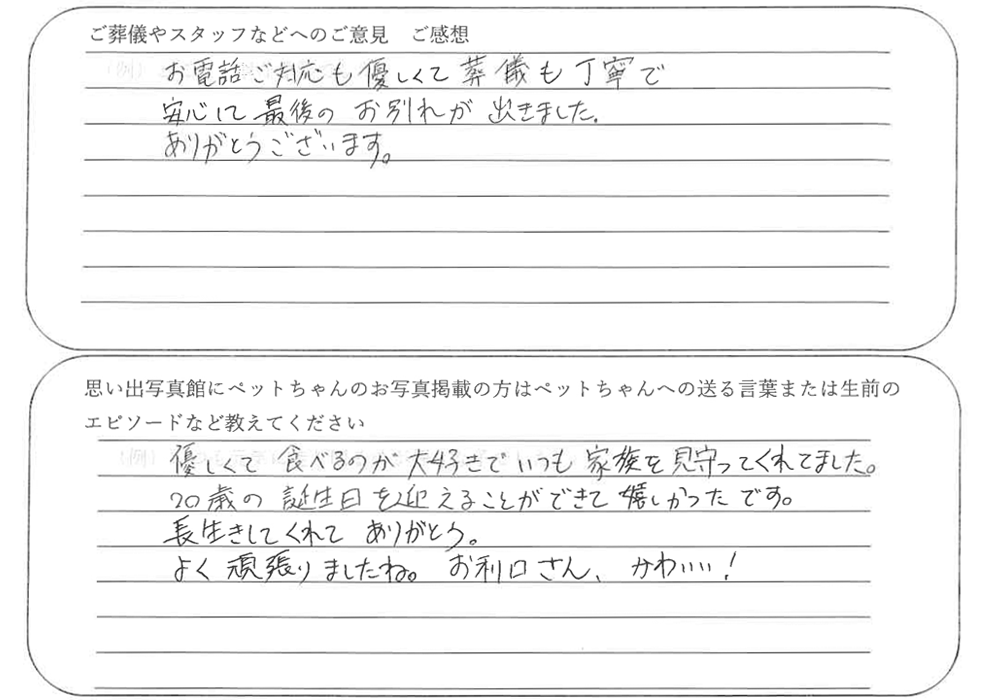 ご葬儀やスタッフなどへのご意見　ご感想
お電話ご対応も優しくて葬儀も丁寧で
安心して最後のお別れが出きました。
ありがとうございます。
思い出写真館にペットちゃんのお写真掲載の方はペットちゃんへの送る言葉または生前の
エピソードなど教えてください
優しくて食べるのが大好きでいつも家族を見守ってくれてました。
20歳の誕生日を迎えることができて嬉しかったです。
長生きしてくれてありがとう。
よく頑張りましたね。お利口さん、かわいい！